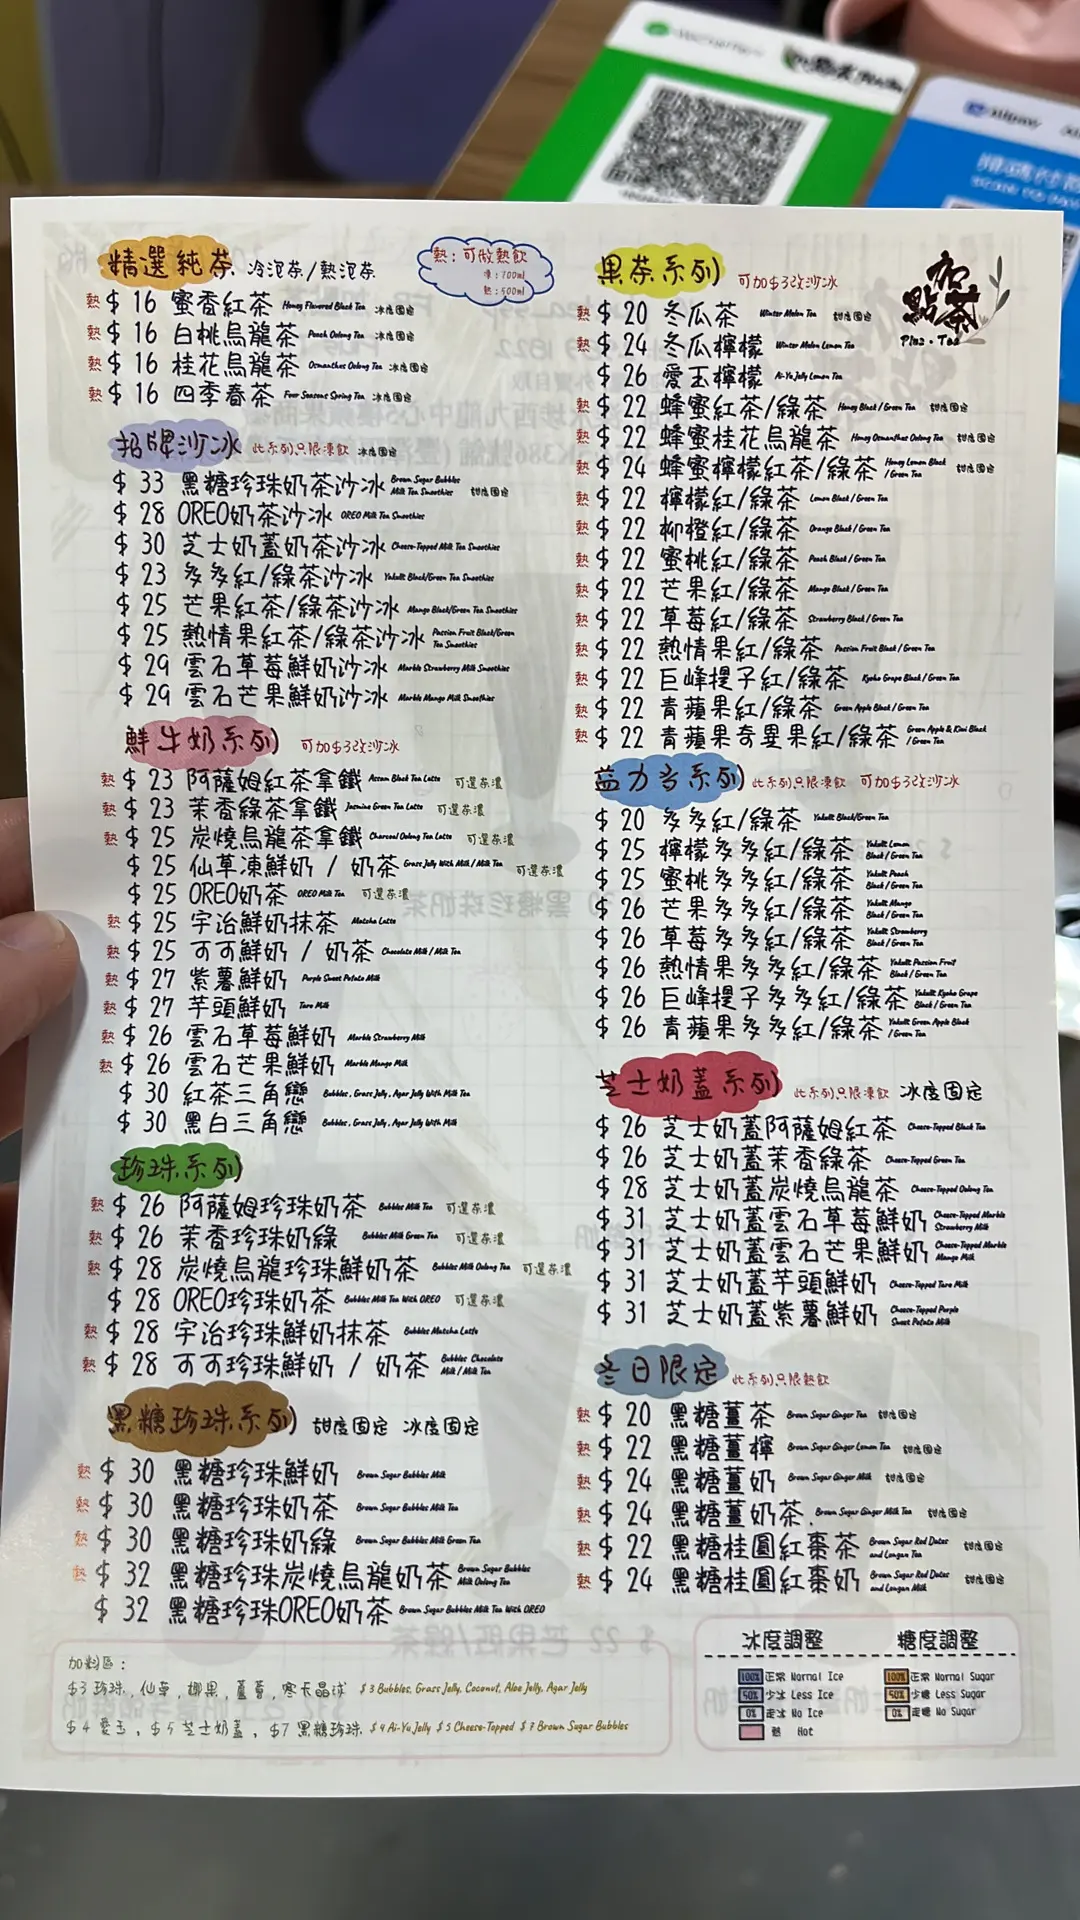 Alipay
SCAN TO PAY
精選純茶 冷泡茶/熱泡茶
熱:可做熱飲
凍:700ml
熱:500ml
熱 $ 16 蜜香紅茶 Honey Flavored Black Tea 冰度固定
熱 $ 16 白桃烏龍茶 Peach Oolong Tea 冰度固定
熱 $ 16 桂花烏龍茶 Osmanthus Oolong Tea 冰度固定
熱 $ 16 四季春茶 Four Seasons Spring Tea 冰度固定
招牌沙冰 此系列只限凍飲 冰度固定
$ 33 黑糖珍珠奶茶沙冰 Brown Sugar Bubbles Milk Tea Smoothies 甜度固定
$ 28 OREO奶茶沙冰 OREO Milk Tea Smoothies
$ 30 芝士奶蓋奶茶沙冰 Cheese-Topped Milk Tea Smoothies
$ 23 多多紅/綠茶沙冰 Yakult Black/Green Tea Smoothies
$ 25 芒果紅茶/綠茶沙冰 Mango Black/Green Tea Smoothies
$ 25 熱情果紅茶/綠茶沙冰 Passion Fruit Black/Green Tea Smoothies
$ 29 雲石草莓鮮奶沙冰 Marble Strawberry Milk Smoothies
$ 29 雲石芒果鮮奶沙冰 Marble Mango Milk Smoothies
鮮牛奶系列 可加$3改沙冰
熱 $ 23 阿薩姆紅茶拿鐵 Assam Black Tea Latte 可選茶濃
熱 $ 23 茉香綠茶拿鐵 Jasmine Green Tea Latte 可選茶濃
熱 $ 25 炭燒烏龍茶拿鐵 Charcoal Oolong Tea Latte 可選茶濃
$ 25 仙草凍鮮奶 / 奶茶 Grass Jelly With Milk / Milk Tea 可選茶濃
$ 25 OREO奶茶 OREO Milk Tea 可選茶濃
熱 $ 25 宇治鮮奶抹茶 Matcha Latte
熱 $ 25 可可鮮奶 / 奶茶 Chocolate Milk / Milk Tea
熱 $ 27 紫薯鮮奶 Purple Sweet Potato Milk
熱 $ 27 芋頭鮮奶 Taro Milk
熱 $ 26 雲石草莓鮮奶 Marble Strawberry Milk
熱 $ 26 雲石芒果鮮奶 Marble Mango Milk
$ 30 紅茶三角戀 Bubbles, Grass Jelly, Agar Jelly With Milk Tea
$ 30 黑白三角戀 Bubbles, Grass Jelly, Agar Jelly With Milk
珍珠系列
熱 $ 26 阿薩姆珍珠奶茶 Bubbles Milk Tea 可選茶濃
熱 $ 26 茉香珍珠奶綠 Bubbles Milk Green Tea 可選茶濃
熱 $ 28 炭燒烏龍珍珠鮮奶茶 Bubbles Milk Oolong Tea 可選茶濃
$ 28 OREO珍珠奶茶 Bubbles Milk Tea With OREO 可選茶濃
熱 $ 28 宇治珍珠鮮奶抹茶 Bubbles Matcha Latte
熱 $ 28 可可珍珠鮮奶 / 奶茶 Bubbles Chocolate Milk / Milk Tea
黑糖珍珠系列 甜度固定 冰度固定
熱 $ 30 黑糖珍珠鮮奶 Brown Sugar Bubbles Milk
熱 $ 30 黑糖珍珠奶茶 Brown Sugar Bubbles Milk Tea
熱 $ 30 黑糖珍珠奶綠 Brown Sugar Bubbles Milk Green Tea
熱 $ 32 黑糖珍珠炭燒烏龍奶茶 Brown Sugar Bubbles Milk Oolong Tea
$ 32 黑糖珍珠OREO奶茶 Brown Sugar Bubbles Milk Tea With OREO
加料區:
$3 珍珠,仙草,椰果,蘆薈,寒天晶球 $ 3 Bubbles, Grass Jelly, Coconut, Aloe Jelly, Agar Jelly
$4 愛玉,$5 芝士奶蓋,$7 黑糖珍珠 $ 4 Ai-Yu Jelly $ 5 Cheese-Topped $ 7 Brown Sugar Bubbles
果茶系列 可加$3改沙冰
加點茶
Plus·Tea
熱 $ 20 冬瓜茶 Winter Melon Tea 甜度固定
熱 $ 24 冬瓜檸檬 Winter Melon Lemon Tea
熱 $ 26 愛玉檸檬 Ai-Yu Jelly Lemon Tea
熱 $ 22 蜂蜜紅茶/綠茶 Honey Black / Green Tea 甜度固定
熱 $ 22 蜂蜜桂花烏龍茶 Honey Osmanthus Oolong Tea 甜度固定
熱 $ 24 蜂蜜檸檬紅茶/綠茶 Honey Lemon Black / Green Tea 甜度固定
熱 $ 22 檸檬紅/綠茶 Lemon Black / Green Tea
熱 $ 22 柳橙紅/綠茶 Orange Black / Green Tea
熱 $ 22 蜜桃紅/綠茶 Peach Black / Green Tea
熱 $ 22 芒果紅/綠茶 Mango Black / Green Tea
熱 $ 22 草莓紅/綠茶 Strawberry Black / Green Tea
熱 $ 22 熱情果紅/綠茶 Passion Fruit Black / Green Tea
熱 $ 22 巨峰提子紅/綠茶 Kyoho Grape Black / Green Tea
熱 $ 22 青蘋果紅/綠茶 Green Apple Black / Green Tea
熱 $ 22 青蘋果奇異果紅/綠茶 Green Apple & Kiwi Black / Green Tea
益力多系列 此系列只限凍飲 可加$3改沙冰
$ 20 多多紅/綠茶 Yakult Black/Green Tea
$ 25 檸檬多多紅/綠茶 Yakult Lemon Black / Green Tea
$ 25 蜜桃多多紅/綠茶 Yakult Peach Black / Green Tea
$ 26 芒果多多紅/綠茶 Yakult Mango Black / Green Tea
$ 26 草莓多多紅/綠茶 Yakult Strawberry Black / Green Tea
$ 26 熱情果多多紅/綠茶 Yakult Passion Fruit Black / Green Tea
$ 26 巨峰提子多多紅/綠茶 Yakult Kyoho Grape Black / Green Tea
$ 26 青蘋果多多紅/綠茶 Yakult Green Apple Black / Green Tea
芝士奶蓋系列 此系列只限凍飲 冰度固定
$ 26 芝士奶蓋阿薩姆紅茶 Cheese-Topped Black Tea
$ 26 芝士奶蓋茉香綠茶 Cheese-Topped Green Tea
$ 28 芝士奶蓋炭燒烏龍茶 Cheese-Topped Oolong Tea
$ 31 芝士奶蓋雲石草莓鮮奶 Cheese-Topped Marble Strawberry Milk
$ 31 芝士奶蓋雲石芒果鮮奶 Cheese-Topped Marble Mango Milk
$ 31 芝士奶蓋芋頭鮮奶 Cheese-Topped Taro Milk
$ 31 芝士奶蓋紫薯鮮奶 Cheese-Topped Purple Sweet Potato Milk
冬日限定 此系列只限熱飲
熱 $ 20 黑糖薑茶 Brown Sugar Ginger Tea 甜度固定
熱 $ 22 黑糖薑檸 Brown Sugar Ginger Lemon Tea 甜度固定
熱 $ 24 黑糖薑奶 Brown Sugar Ginger Milk 甜度固定
熱 $ 24 黑糖薑奶茶 Brown Sugar Ginger Milk Tea 甜度固定
熱 $ 22 黑糖桂圓紅棗茶 Brown Sugar Red Dates and Longan Tea 甜度固定
熱 $ 24 黑糖桂圓紅棗奶 Brown Sugar Red Dates and Longan Milk 甜度固定
冰度調整 糖度調整
100% 正常 Normal Ice 100% 正常 Normal Sugar
50% 少冰 Less Ice 50% 少糖 Less Sugar
0% 走冰 No Ice 0% 走糖 No Sugar
熱 Hot